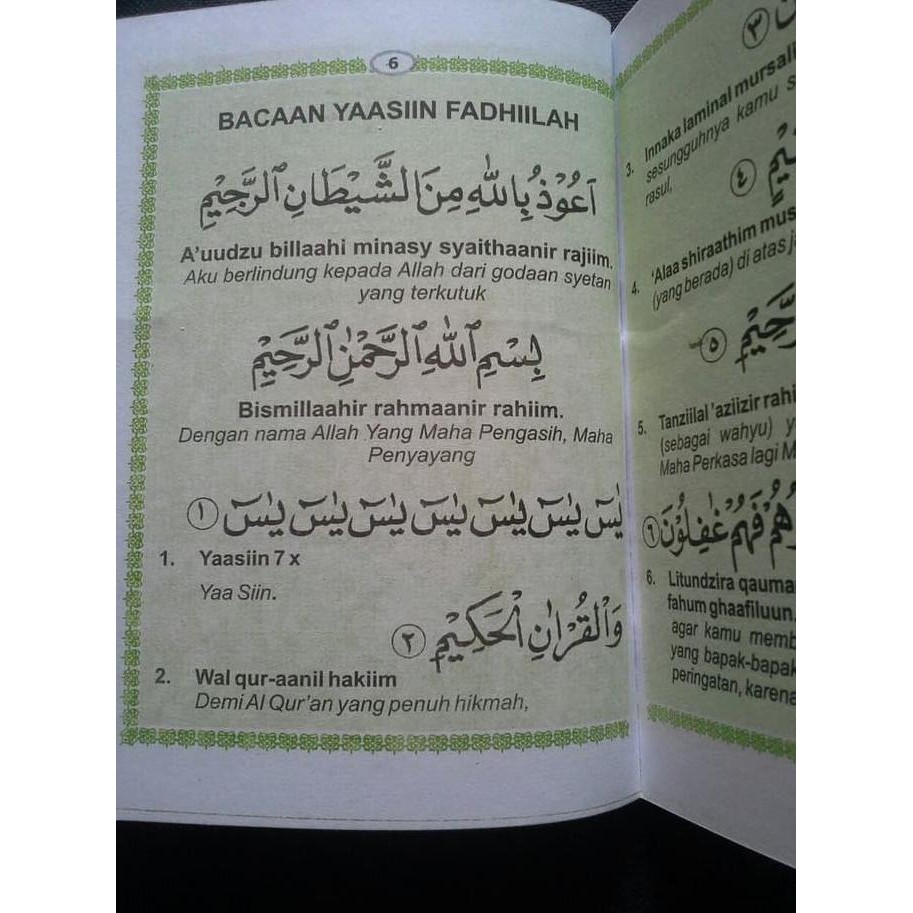 6
BACAAN YAASIIN FADHIILAH
اَعُوْذُ بِاللّٰهِ مِنَ الشَّيْطَانِ الرَّجِيْمِ
A'uudzu billaahi minasy syaithaanir rajiim.
Aku berlindung kepada Allah dari godaan syetan
yang terkutuk
بِسْمِ اللّٰهِ الرَّحْمٰنِ الرَّحِيْمِ
Bismillaahir rahmaanir rahiim.
Dengan nama Allah Yang Maha Pengasih, Maha
Penyayang
يٰسٓ يٰسٓ يٰسٓ يٰسٓ يٰسٓ يٰسٓ يٰسٓ ١
1. Yaasiin 7 x
Yaa Siin.
وَالْقُرْاٰنِ الْحَكِيْمِ ٢
2. Wal qur-aanil hakiim
Demi Al Qur'an yang penuh hikmah,
٣
3. Innaka laminal mursali
sesungguhnya kamu s
rasul,
٤
4. 'Alaa shiraathim mus
(yang berada) di atas j
٥
5. Tanziilal 'aziizir rahi
(sebagai wahyu) y
Maha Perkasa lagi M
فَهُمْ غٰفِلُوْنَ ٦
6. Litundzira qauma
fahum ghaafiluun.
agar kamu memb
yang bapak-bapak
peringatan, karena